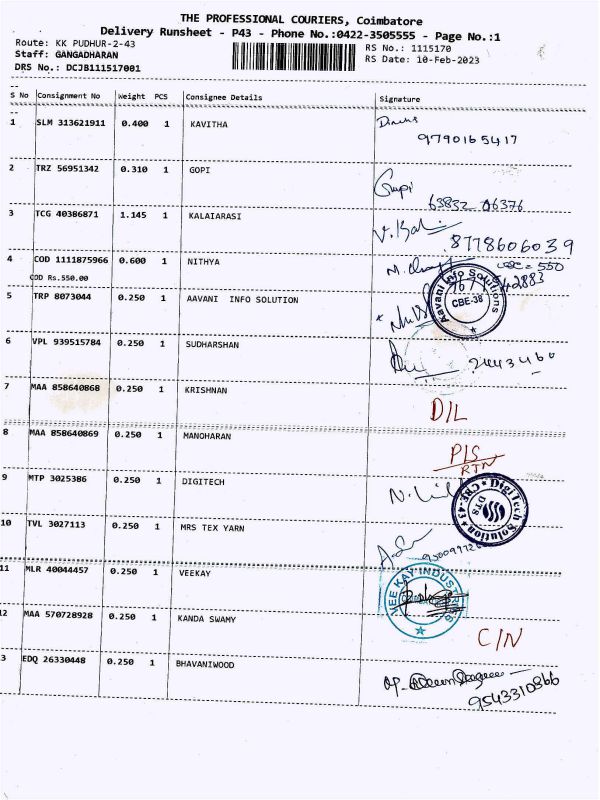 THE PROFESSIONAL COURIERS, Coimbatore
Delivery Runsheet - P43 - Phone No.:0422-3505555 - Page No.:1
Route: KK PUDHUR-2-43 RS No.: 1115170
Staff: GANGADHARAN RS Date: 10-Feb-2023
DRS No.: DCJB111517001
S No Consignment No Weight PCS Consignee Details Signature
1 SLM 313621911 0.400 1 KAVITHA
9790165417
2 TRZ 56951342 0.310 1 GOPI
Gopi
63832 06376
3 TCG 40386871 1.145 1 KALAIARASI
8778606039
4 COD 1111875966 0.600 1 NITHYA
COD Rs.550.00
5 TRP 8073044 0.250 1 AAVANI INFO SOLUTION
Aavani Info Solutions
CBE-38
6 VPL 939515784 0.250 1 SUDHARSHAN
7 MAA 858640868 0.250 1 KRISHNAN
D/L
8 MAA 858640869 0.250 1 MANOHARAN
P/S
RTN
9 MTP 3025386 0.250 1 DIGITECH
DigiTech Solution
CBE-43
DTS
10 TVL 3027113 0.250 1 MRS TEX YARN
11 MLR 40044457 0.250 1 VEEKAY
VEE KAY INDUSTRIES
12 MAA 570728928 0.250 1 KANDA SWAMY
C/N
3 EDQ 26330448 0.250 1 BHAVANIWOOD
9543310866